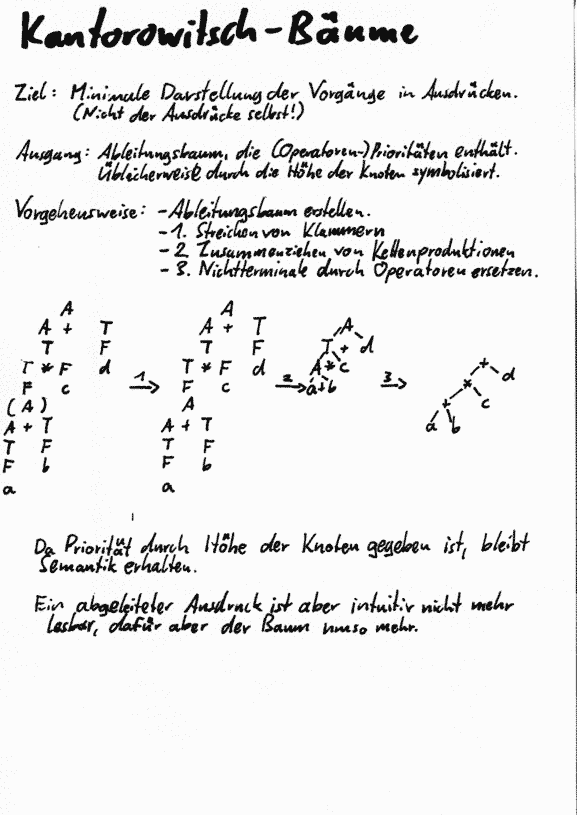 Kantorowitsch-Bäume
Ziel: Minimale Darstellung der Vorgänge in Ausdrücken.
(Nicht der Ausdrücke selbst!)
Ausgang: Ableitungsbaum, die (Operatoren-)Prioritäten enthält.
Üblicherweise durch die Höhe der Knoten symbolisiert.
Vorgehensweise: - Ableitungsbaum erstellen.
- 1. Streichen von Klammern
- 2. Zusammenziehen von Kettenproduktionen
- 3. Nichtterminale durch Operatoren ersetzen.
A A
A + T A + T A
T F T F T + d
T * F d T * F d A * c + d
F c 1 F c 2 a + b 3 * c
(A) A + a b
A + T A + T
T F T F
F b F b
a a
Da Priorität durch Höhe der Knoten gegeben ist, bleibt
Semantik erhalten.
Ein abgeleiteter Ausdruck ist aber intuitiv nicht mehr
lesbar, dafür aber der Baum umso mehr.